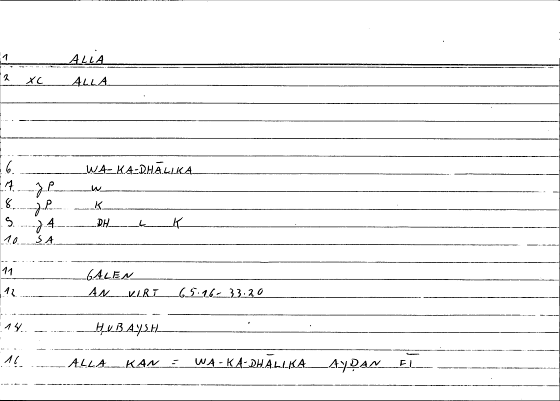 1 ALLA
2 XC ALLA
6 WA-KA-DHĀLIKA
7. JP W
8. JP K
9. JA DH L K
10 SA
11 GALEN
12 AN VIRT 65.16-33.20
14. ḤUBAYSH
16 ALLA KAN = WA-KA-DHĀLIKA AYḌAN FĪ